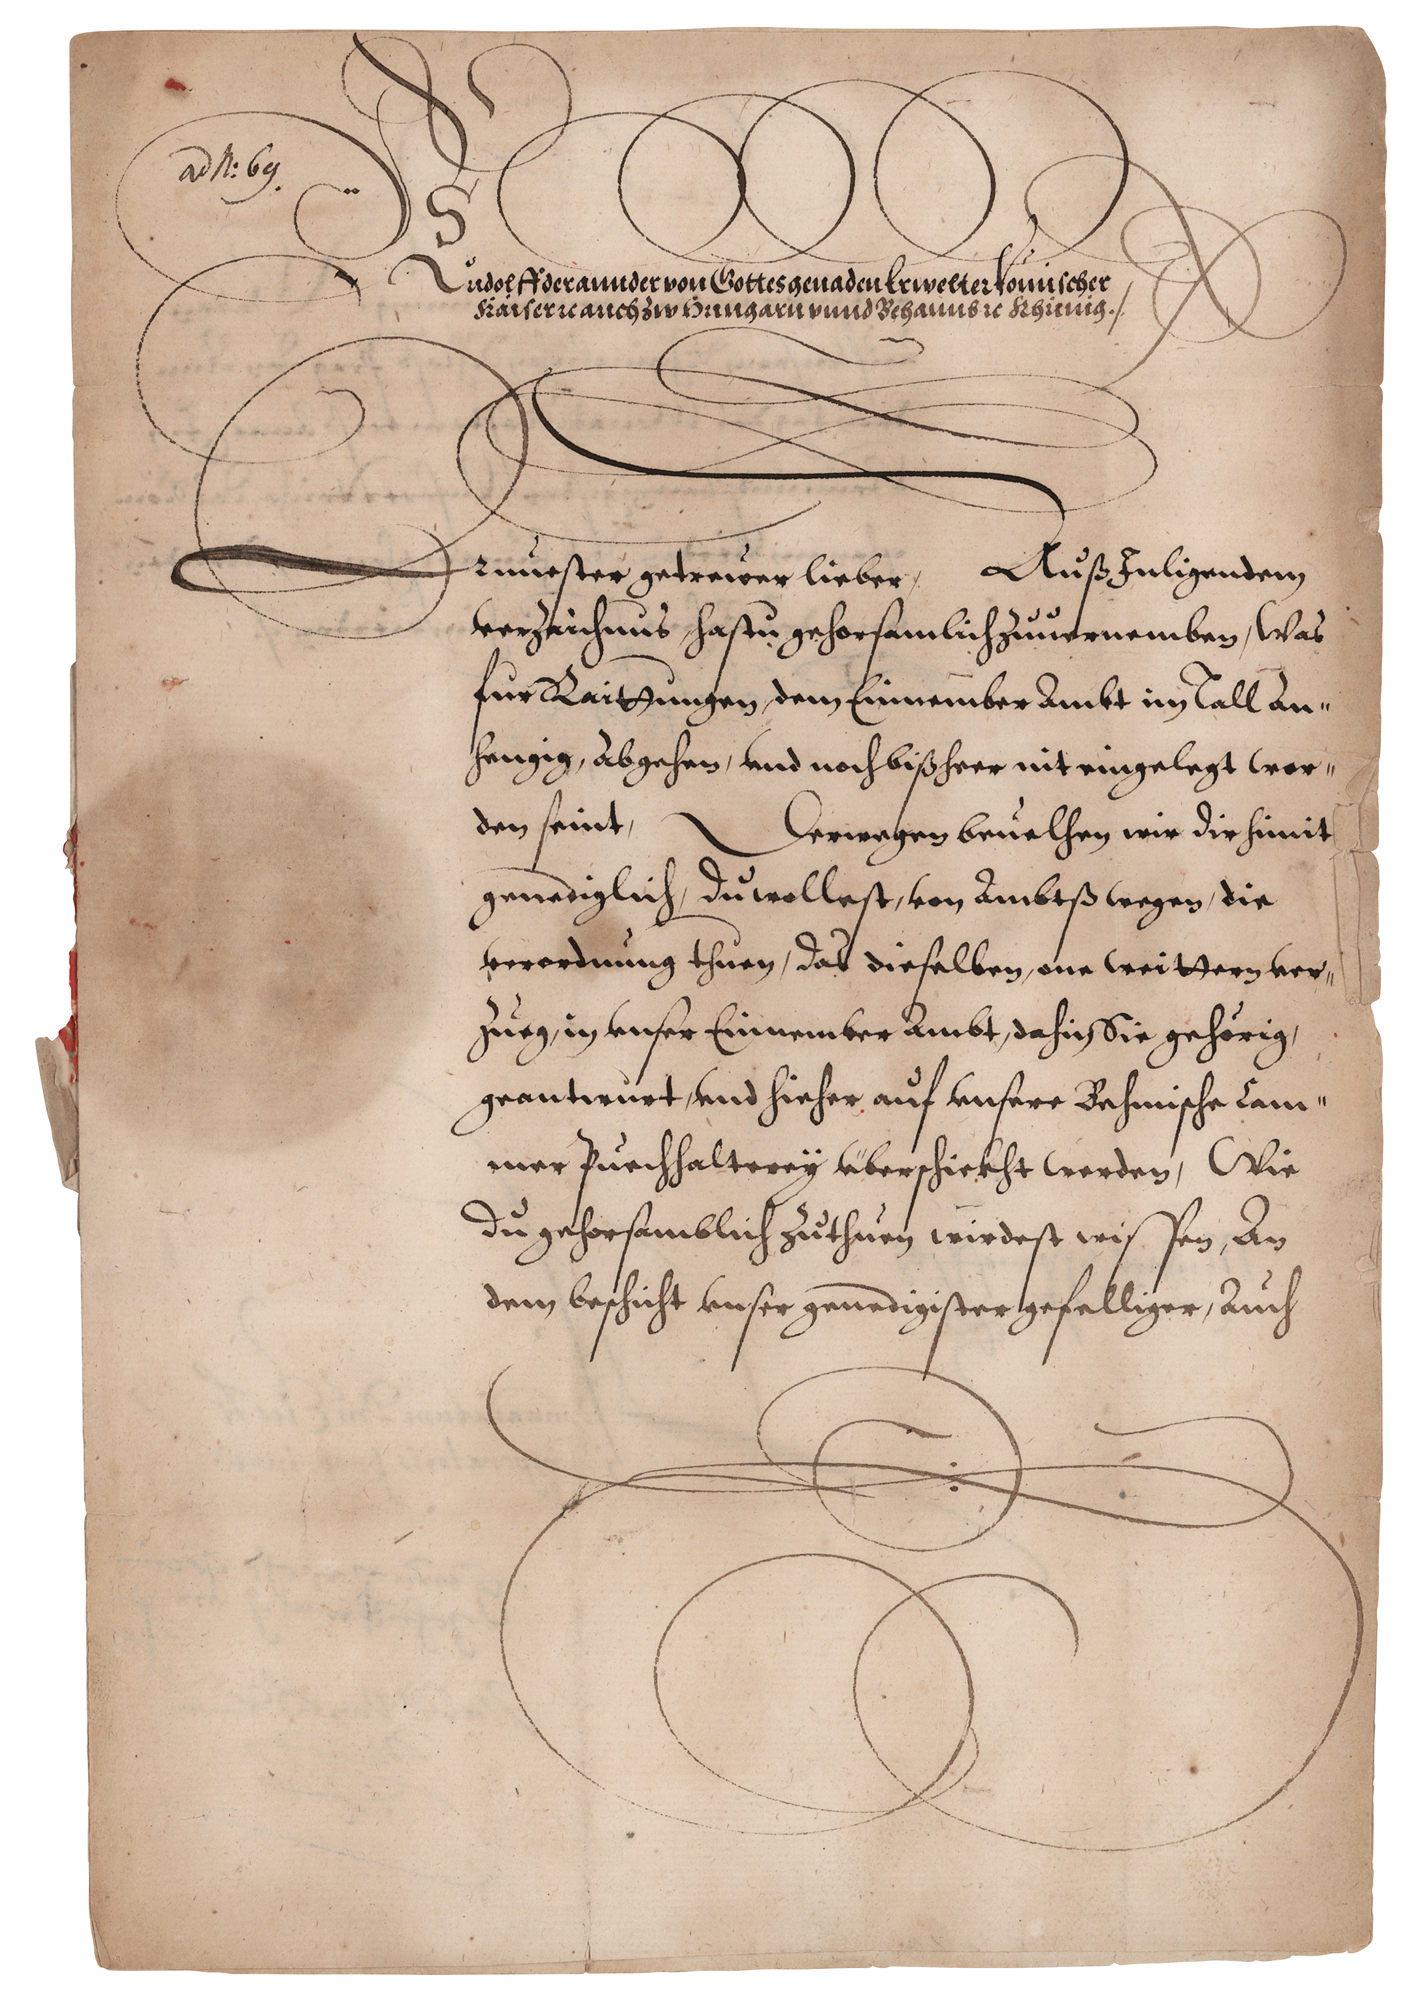 ad N: 69.
Rudolff der annder von Gottes genaden Erwelter Römischer
Kaiser ꝛc auch zw Hungarn vnnd Behaimb ꝛc Khünig ./.
Ernuester getrewer lieber, Auß Inligendem
verzaichnus, hastu gehorsamlich zuuernemben, Was
fur Raittungen, dem Einnember Ambt im Tall An-
hengig, Abgehen, vnd noch bißheer nit eingelegt wor-
den seint, Derwegen beuelhen wir dir himit
genediglich, Du wollest, von Ambtß wegen, die
verordnung thuen, das dieselben, one weittern ver-
zueg, in vnser Einnember Ambt, dahin Sie gehörig,
geantwurt, vnd hieher auf vnsere Behmische Cam-
mer Puechhalterey überschickht werden, Wie
Du gehorsamblich zuthuen wirdest wissen, An
dem beschicht vnser genedigister gefelliger, Auch